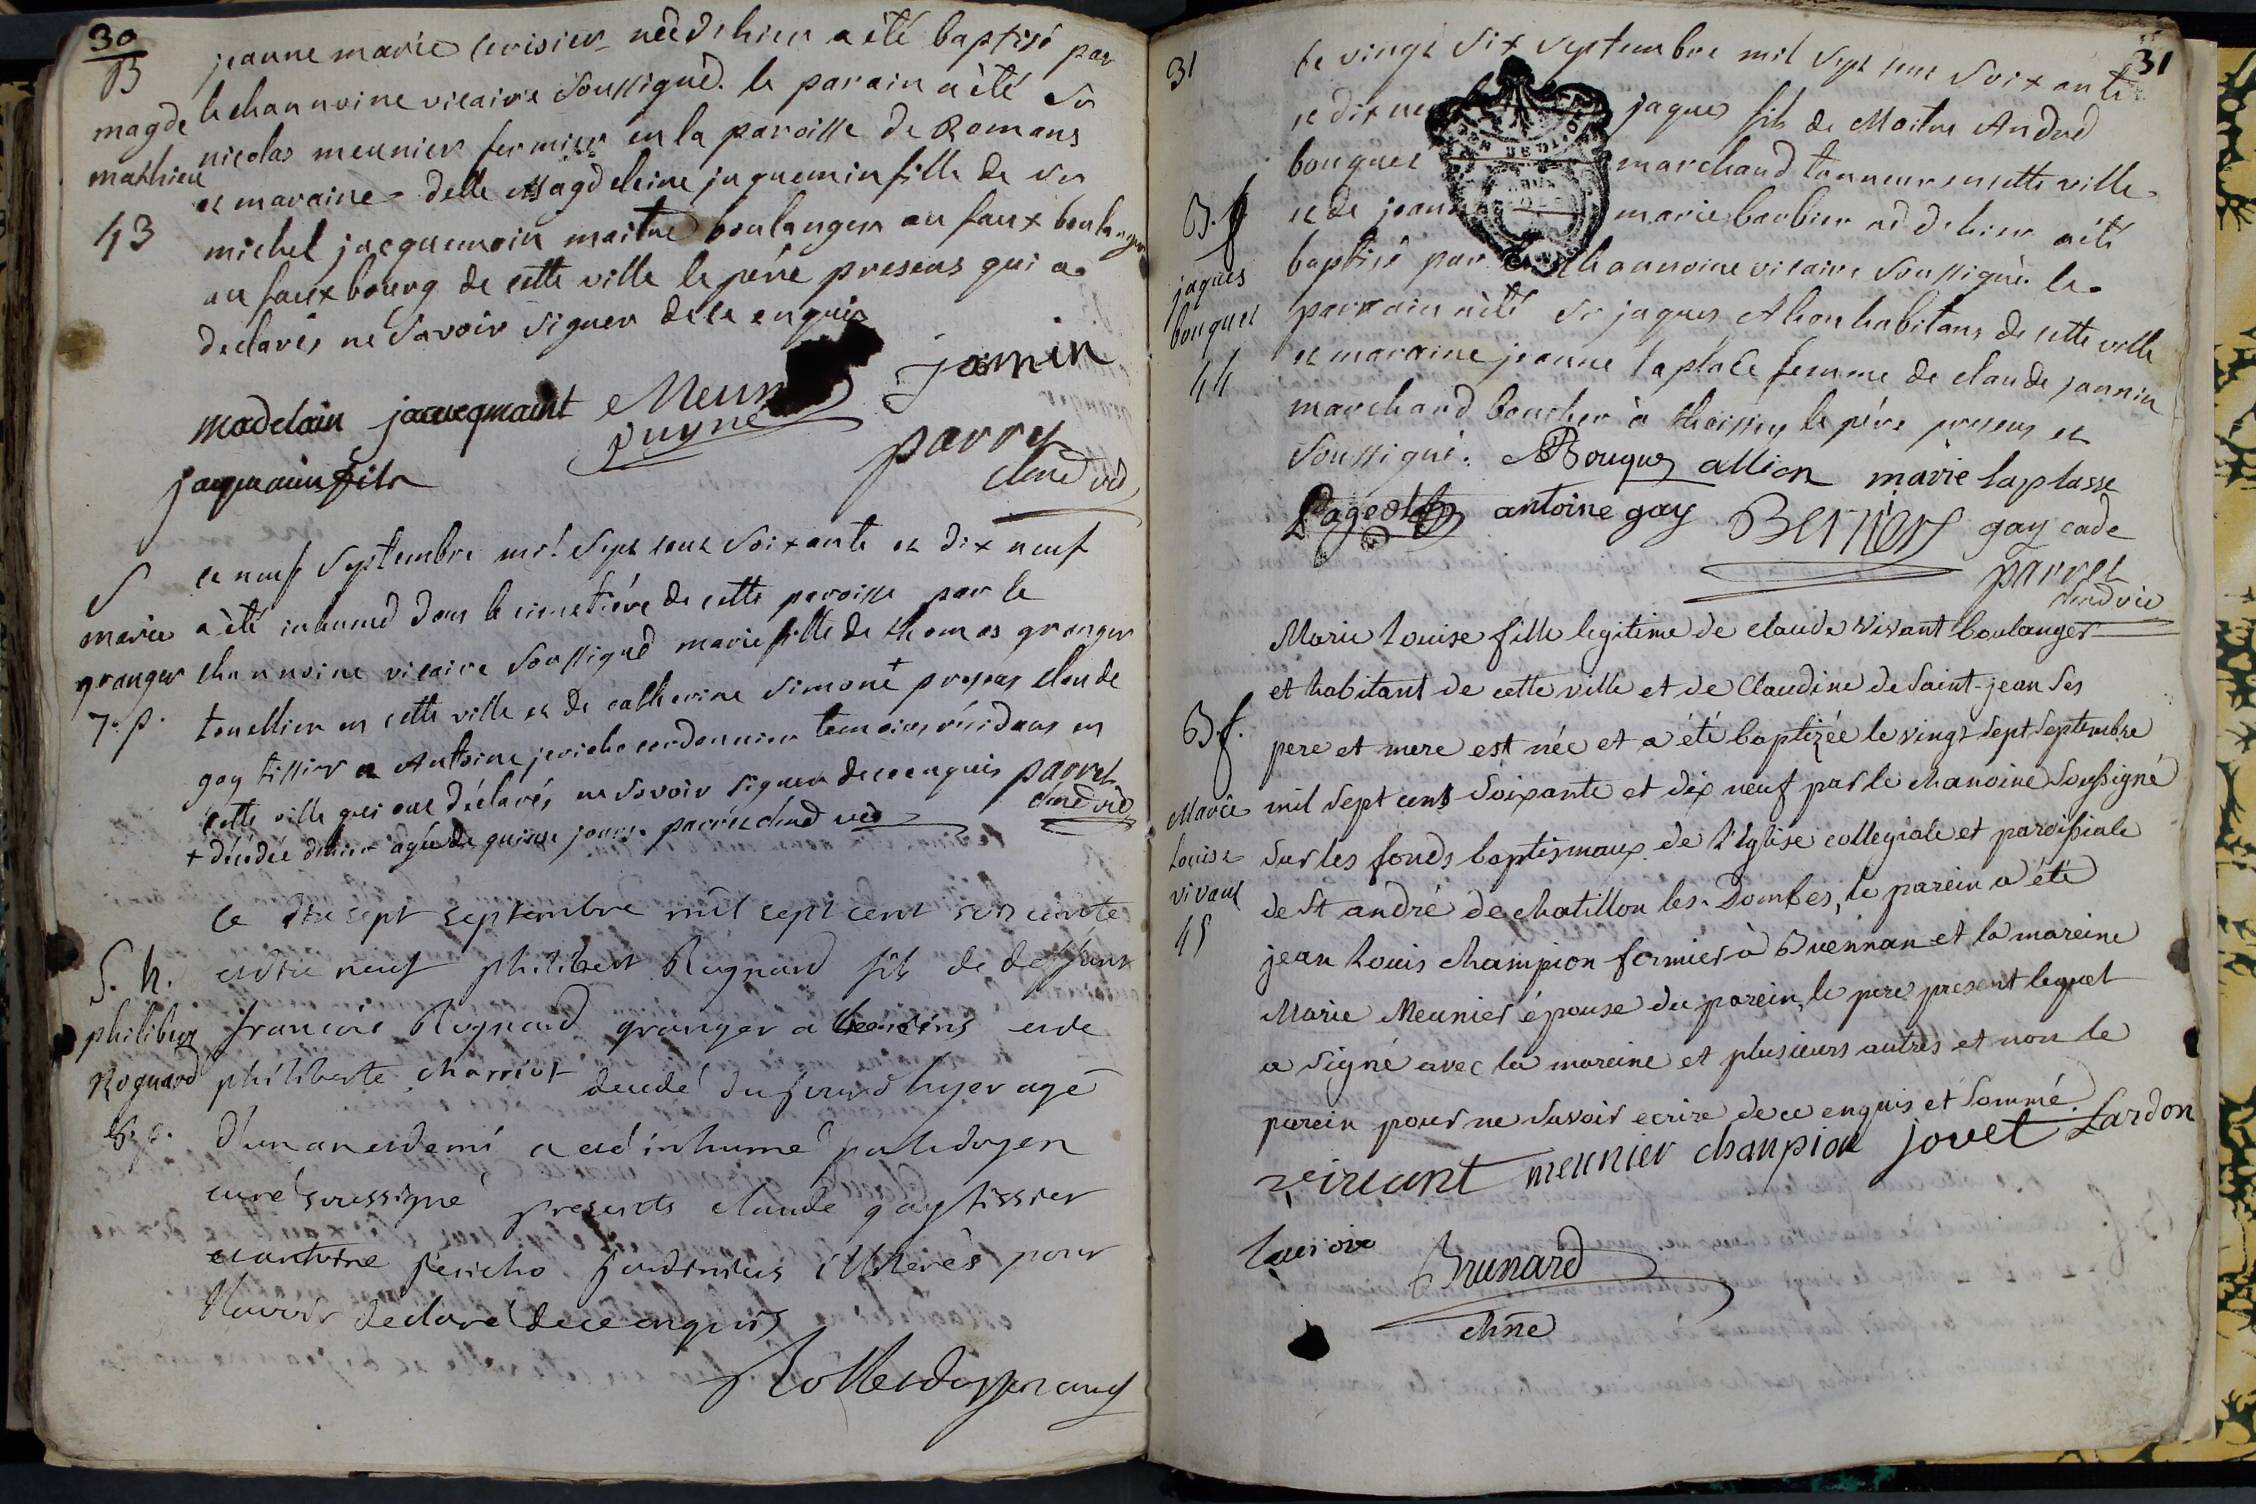 30
B
magde
mathieu
43
jeanne marie cerisier née d'hier a été baptisé par
le channoine vicaire soussigné. le parain a été sr
nicolas meunier fermier en la paroisse de Romans
et maraine delle Magdeleine jaquemin fille de sr
michel jacquemoin maitre boulanger au faux boulanger
au fauxbourg de cette ville le père present qui a
declarés ne savoir signer de ce enquis
jomin
madelain jacueqmaint Meun
Duyné
jaquaum fils
parret
chne vic
S
marie
granger
7. p.
ce neuf septembre mil sept cent soixante et dix neuf
a été inhumé dans le cimetière de cette paroisse par le
channoine vicaire soussigné marie fille de thomas granger
tonellier en cette ville et de catherine simoné + presens claude
gay tissier et Antoine jericho cordonnier temoins résidans en
cette ville qui ont déclarés ne savoir signer de ce enquis parret
chne vic
+ décédée d'hier agée de quinze jours. parret chne vic
S. h.
philibert
Rognard
6. p.
ce dix sept septembre mil sept cent soixante
et dix neuf philibert Rognard fils de deffunt
francois Rognard granger a et de
philiberte charriot decedé du jour d'hyer agé
d'un an et demi a eté inhumé par le doyen
curé soussigné presents claude gay tissier
et antoine jericho jardiniers illiterés pour
l'avoir declaré de ce enquis
doyen curé
31
31
B. f
jaques
bouquet
44
le vingt six septembre mil sept cent soixante
et dix neuf jaques fils de Maitre André
bouquet marchand tanneur en cette ville
et de jeanne marie barbier né d'hier a été
baptisé par le channoine vicaire soussigné. le
parrain a été sr jaques Alion habitans de cette ville
et maraine jeanne laplace femme de claude jannin
marchand boucher à thoissey le père present et
soussigné. ABouquet allion marie laplasse
Pageolt antoine gay Bernier gay cade
parret
chne vic
B. f.
Marie
Louise
vivant
45
Marie Louise fille legitime de claude vivant boulanger
et habitant de cette ville et de Claudine de Saint-jean ses
pere et mere est née et a été baptizée le vingt sept septembre
mil sept cent soixante et dix neuf par le chanoine soussigné
sur les fonds baptismaux de l'Eglise collegiale et paroissiale
de St andré de chatillon les Dombes, le parein a été
jean Louis champion fermier à Buennan et la mareine
Marie Meunier épouse du parein, le pere present lequel
a signé avec la mareine et plusieurs autres et non le
parein pour ne savoir ecrire de ce enquis et sommé.
veivant meunier chanpion jovet Lardon
lacroix
Brunard
chne